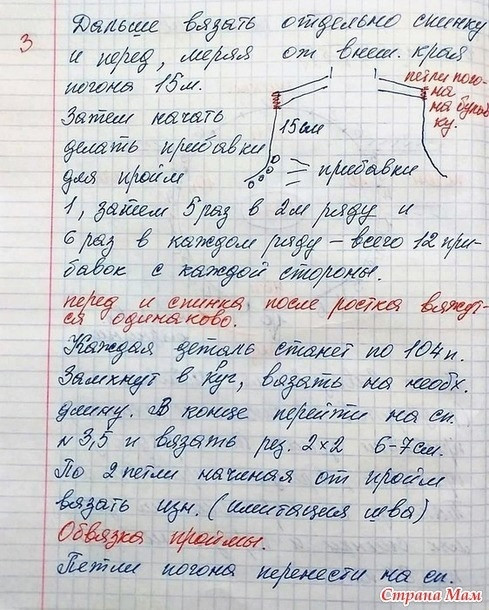 3
Дальше вязать отдельно спинку
и перед, меряя от внеш. края
погона 15м.
петли пого-
на
на булав
ку.
Затем начать
15см
делать прибавки
для пройм
прибавки
1, затем 5 раз в 2м ряду и
6 раз в каждом ряду – всего 12 при-
бавок с каждой стороны.
перед и спинка после ростка вяжут-
ся одинаково.
Каждая деталь станет по 104 п.
Замкнут в круг, вязать на необх.
длину. В конце перейти на сп.
N 3,5 и вязать рез. 2×2 6-7см.
По 2 петли начиная от пройм
вязать изн. (имитация шва)
Обвязка проймы.
Петли погона перенести на сп.
Страна Мам